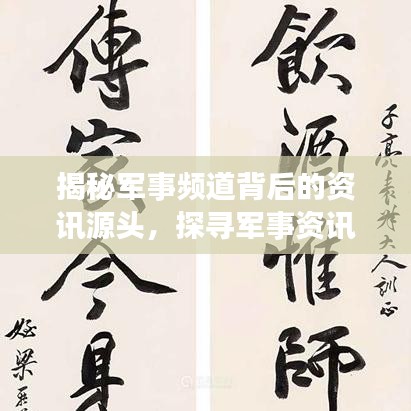 飲酒惟師
子亮表叔大人訓正
傳家令身
姪梁
揭秘军事频道背后的资
讯源头，探寻军事资讯